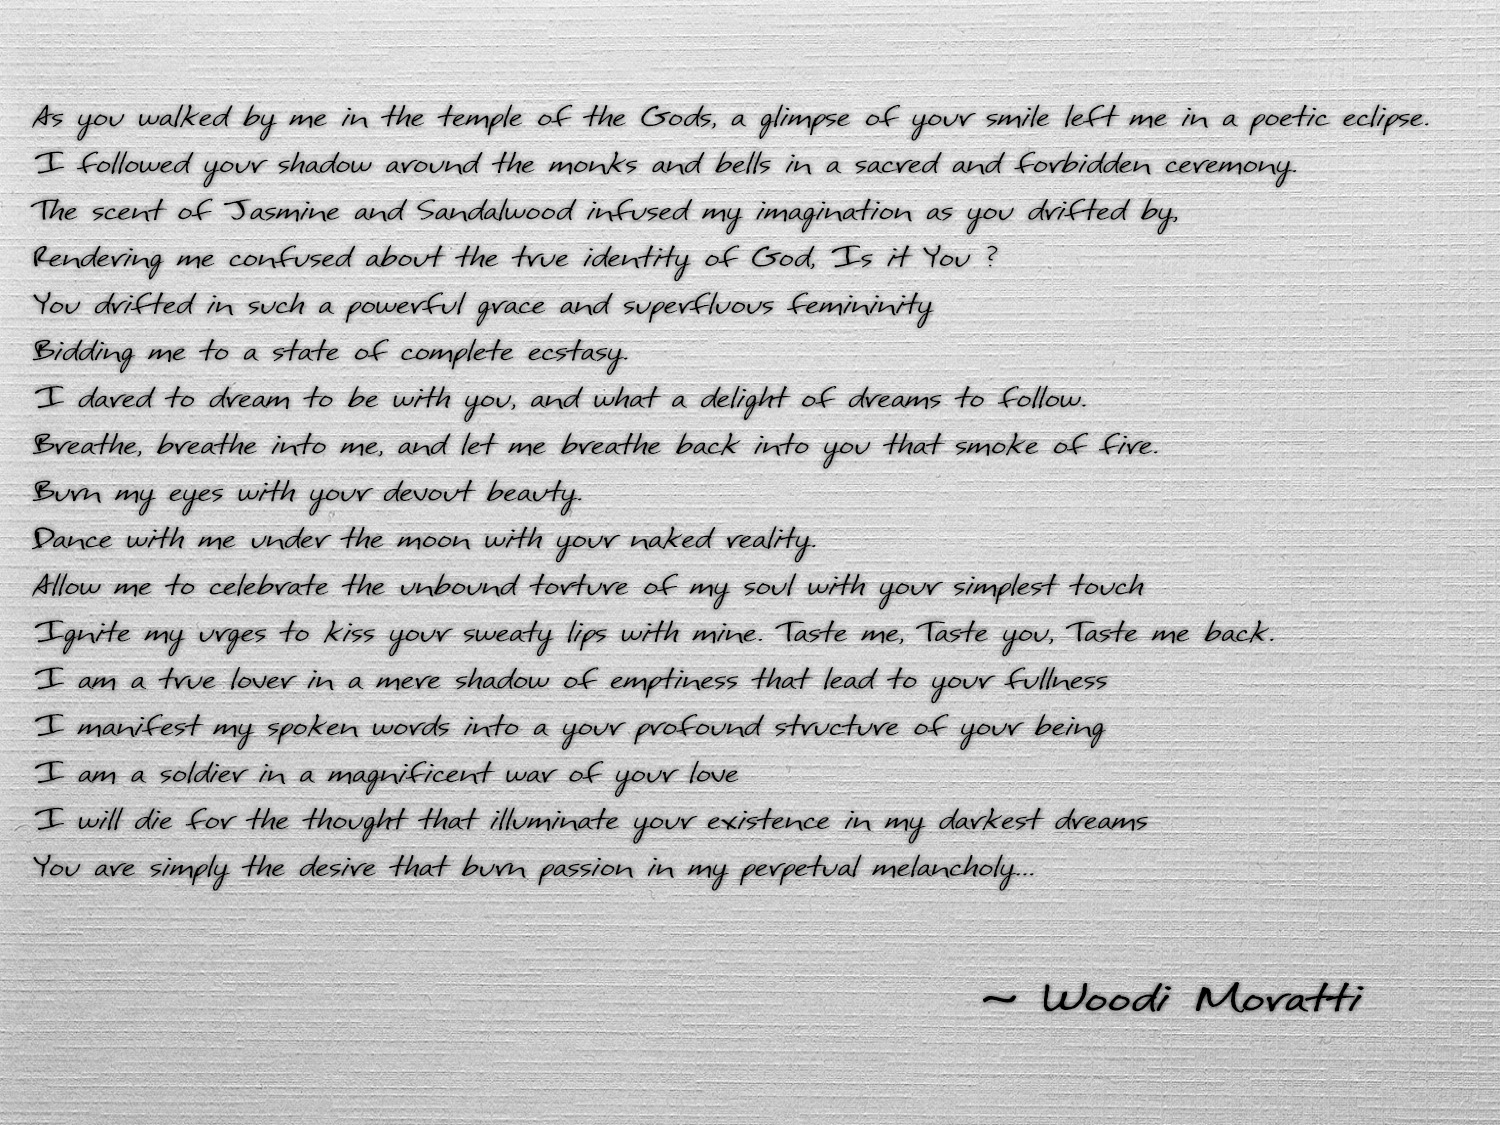 As you walked by me in the temple of the Gods, a glimpse of your smile left me in a poetic eclipse.
I followed your shadow around the monks and bells in a sacred and forbidden ceremony.
The scent of Jasmine and Sandalwood infused my imagination as you drifted by,
Rendering me confused about the true identity of God, Is it You ?
You drifted in such a powerful grace and superfluous femininity
Bidding me to a state of complete ecstasy.
I dared to dream to be with you, and what a delight of dreams to follow.
Breathe, breathe into me, and let me breathe back into you that smoke of fire.
Burn my eyes with your devout beauty.
Dance with me under the moon with your naked reality.
Allow me to celebrate the unbound torture of my soul with your simplest touch
Ignite my urges to kiss your sweaty lips with mine. Taste me, Taste you, Taste me back.
I am a true lover in a mere shadow of emptiness that lead to your fullness
I manifest my spoken words into a your profound structure of your being
I am a soldier in a magnificent war of your love
I will die for the thought that illuminate your existence in my darkest dreams
You are simply the desire that burn passion in my perpetual melancholy...
~ Woodi Moratti